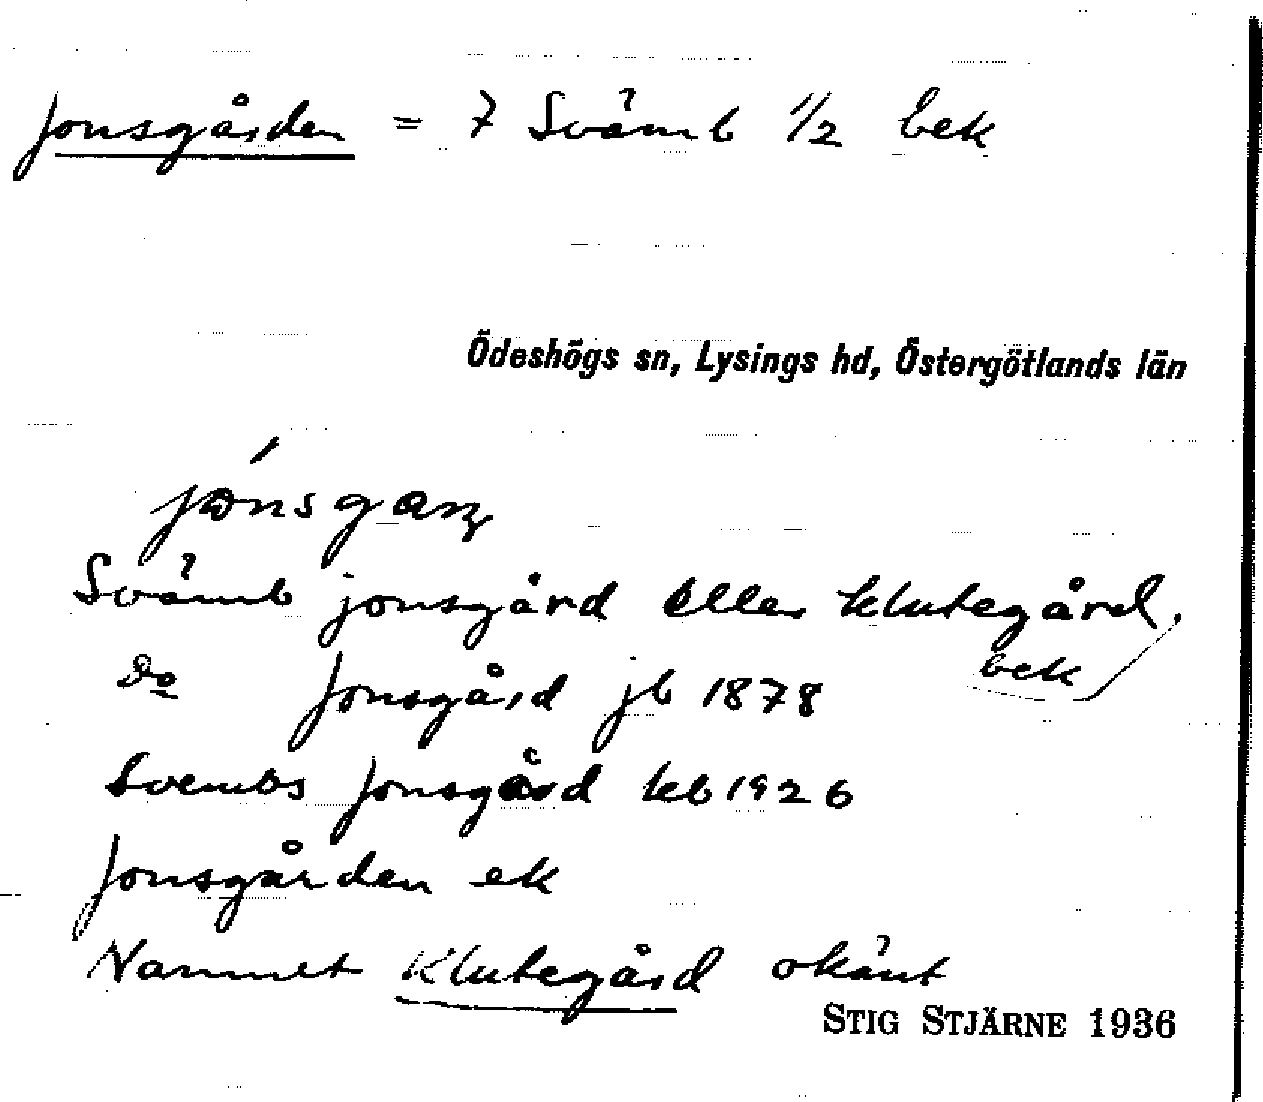 Jonsgården = 7 Svämb 1/2 bek
Ödeshögs sn, Lysings hd, Östergötlands län
Svämb jonsgård eller klutegård,
bek
Do Jonsgård jb 1878
Svembs Jonsgård kb 1926
Jonsgården ek
Namnet Klutegård okänt
STIG STJÄRNE 1936